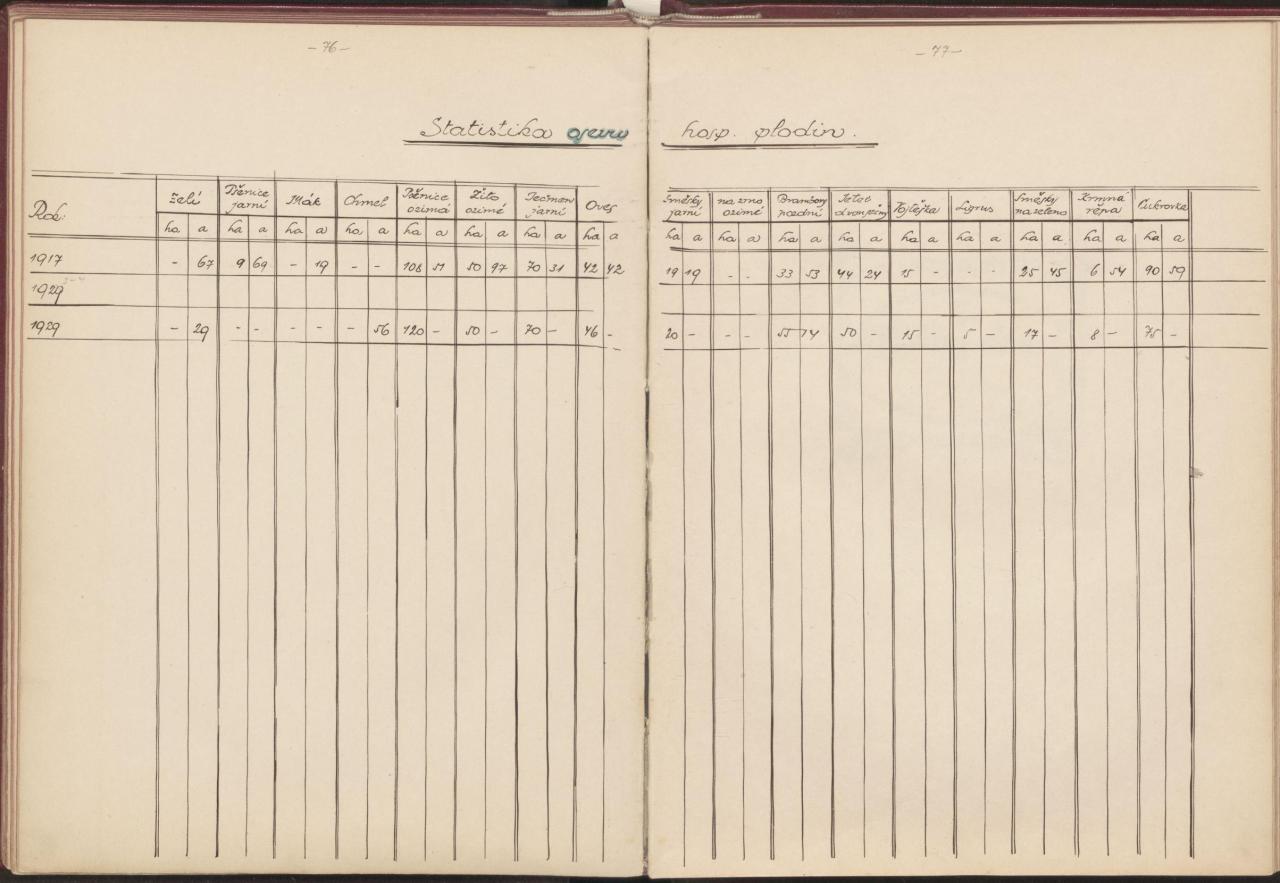 - 76 -
- 77 -
Statistika osevu hosp. plodin.
Rok: Zelí Pšenice jarní Mák Chmel Pšenice ozimá Žito ozimé Ječmen jarní Oves Směsky jarní na zrno ozimé Brambory pozdní Jetel dvousečný Vojtěška Ligrus Směsky na zeleno Krmná řepa Cukrovka
ha a ha a ha a ha a ha a ha a ha a ha a ha a ha a ha a ha a ha a ha a ha a ha a ha a
1917 - 67 9 69 - 19 - - 108 51 50 97 70 31 42 42 19 19 - - 33 53 44 24 15 - - - 25 45 6 54 90 59
1929
1929 - 29 - - - - - 56 120 - 50 - 70 - 46 - 20 - - - 55 74 50 - 15 - 5 - 17 - 8 - 75 -